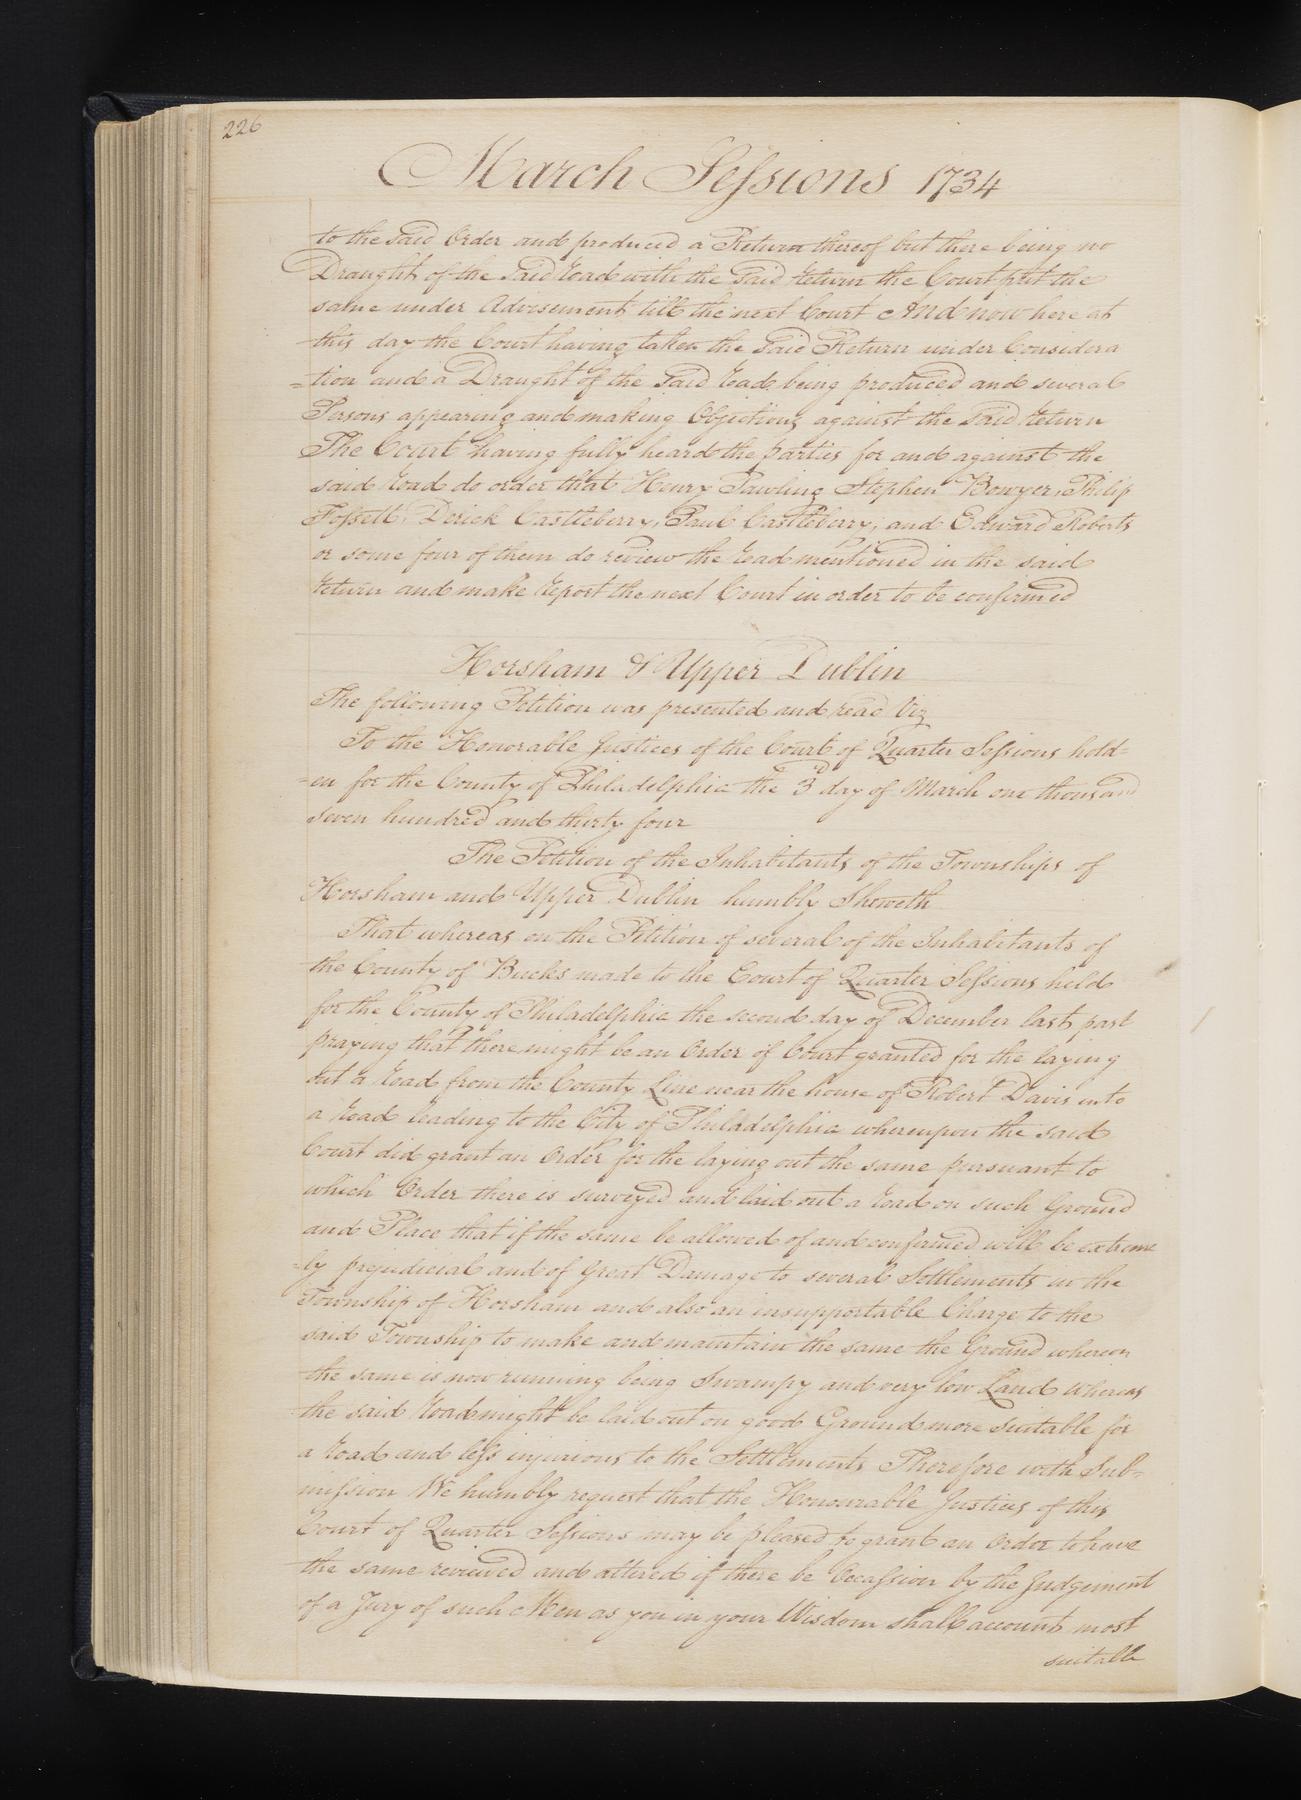 226
March Sessions 1734
to the said Order and produced a Return thereof but there being no
Draught of the said Road with the said Return the Court put the
same under Advisement till the next Court And now here at
this day the Court having taken the said Return under Considera
=tion and a Draught of the said Road being produced and several
Persons appearing and making Objections against the said Return
The Court having fully heard the parties for and against the
said Road do order that Henry Pawling Stephen Bowyer, Philip
Fossett, Derick Castleberry, Paul Castleberry, and Edward Roberts
or some four of them do review the Road mentioned in the said
Return and make Report the next Court in order to be confirmed
Horsham & Upper Dublin
The following Petition was presented and read Viz
To the Honorable Justices of the Court of Quarter Sessions hold=
=en for the County of Philadelphia the 3d day of March one thousand
seven hundred and thirty four
The Petition of the Inhabitants of the Townships of
Horsham and Upper Dublin humbly Sheweth
That whereas on the Petition of several of the Inhabitants of
the County of Bucks made to the Court of Quarter Sessions held
for the County of Philadelphia the second day of December last past
praying that there might be an Order of Court granted for the laying
out a Road from the County Line near the house of Robert Davis into
a Road leading to the City of Philadelphia whereupon the said
Court did grant an Order for the laying out the same pursuant to
which Order there is surveyed and laid out a Road on such Ground
and Place that if the same be allowed of and confirmed will be extreme
=ly prejudicial and of Great Damage to several Settlements in the
Township of Horsham and also an insupportable Charge to the
said Township to make and maintain the same the Ground whereon
the same is now running being Swampy and very low Land Whereas
the said Road might be laid out on good Ground more suitable for
a Road and less injurious to the Settlements Therefore with Sub=
mission We humbly request that the Honourable Justices of this
Court of Quarter Sessions may be pleased to grant an Order to have
the same reviewed and altered if there be Occassion by the Judgement
of a Jury of such Men as you in your Wisdom shall account most
suitable